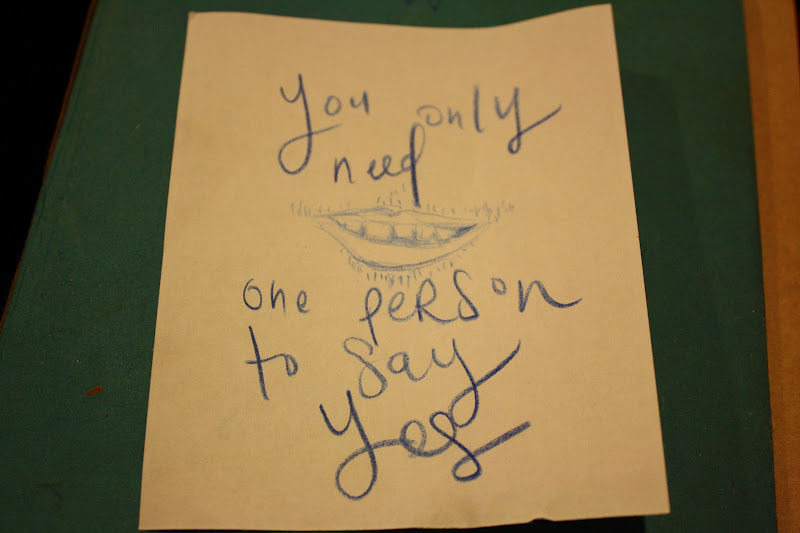 You only
need
one peRSon
to say
Yes